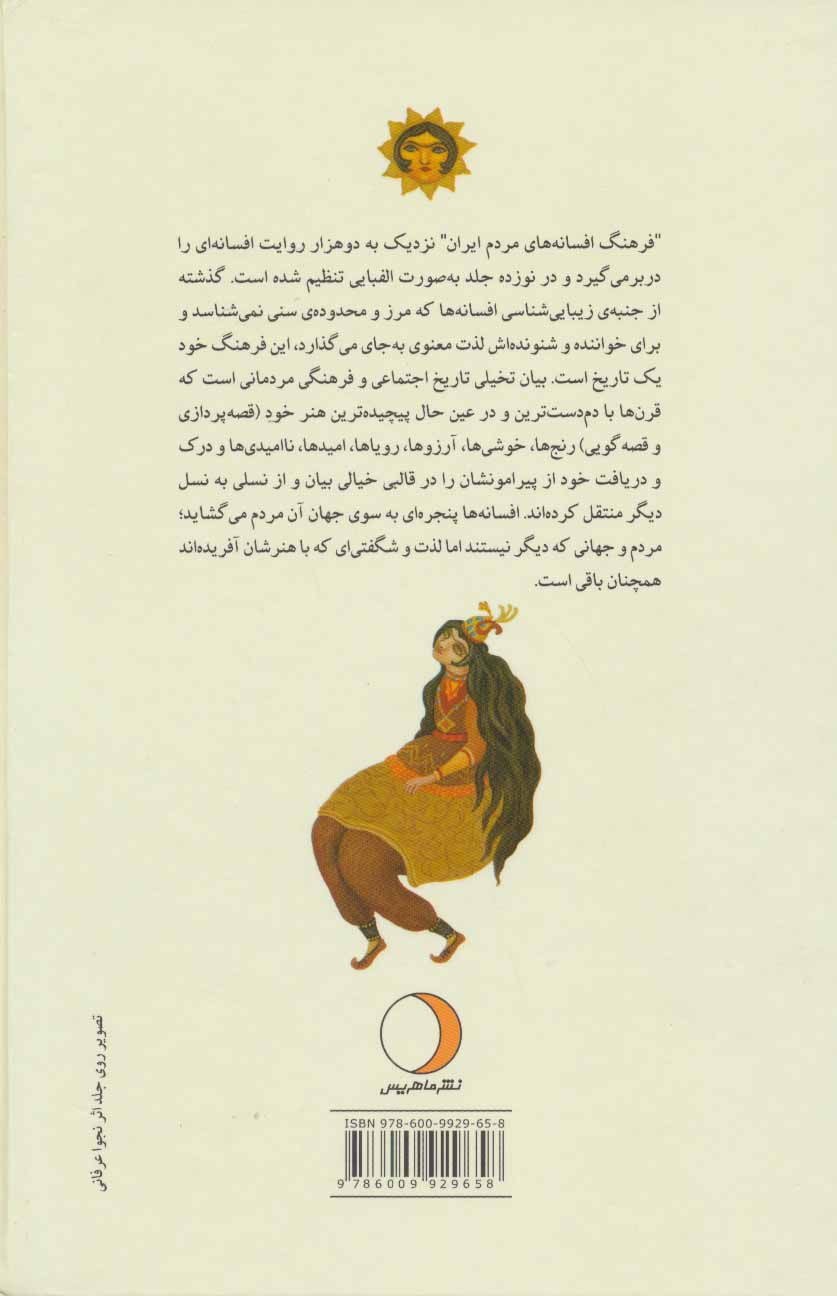 "فرهنگ افسانه‌های مردم ایران" نزدیک به دوهزار روایت افسانه‌ای را
دربرمی‌گیرد و در نوزده جلد به‌صورت الفبایی تنظیم شده است. گذشته
از جنبه‌ی زیبایی‌شناسی افسانه‌ها که مرز و محدوده‌ی سنی نمی‌شناسد و
برای خواننده و شنونده‌اش لذت معنوی به‌جای می‌گذارد، این فرهنگ خود
یک تاریخ است. بیان تخیلی تاریخ اجتماعی و فرهنگی مردمانی است که
قرن‌ها با دم‌دست‌ترین و در عین حال پیچیده‌ترین هنر خودِ (قصه‌پردازی
و قصه‌گویی) رنج‌ها، خوشی‌ها، آرزوها، رویاها، امیدها، ناامیدی‌ها و درک
و دریافت خود از پیرامونشان را در قالبی خیالی بیان و از نسلی به نسل
دیگر منتقل کرده‌اند. افسانه‌ها پنجره‌ای به سوی جهان آن مردم می‌گشاید؛
مردم و جهانی که دیگر نیستند اما لذت و شگفتی‌ای که با هنرشان آفریده‌اند
همچنان باقی است.
نشر ماهریس
ISBN 978-600-9929-65-8
9 786009 929658
تصویر روی جلد اثر نجوا عرفانی